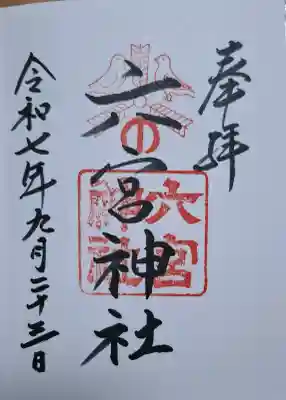 奉拝
六の宮神社
六宮神社
令和七年九月二十三日